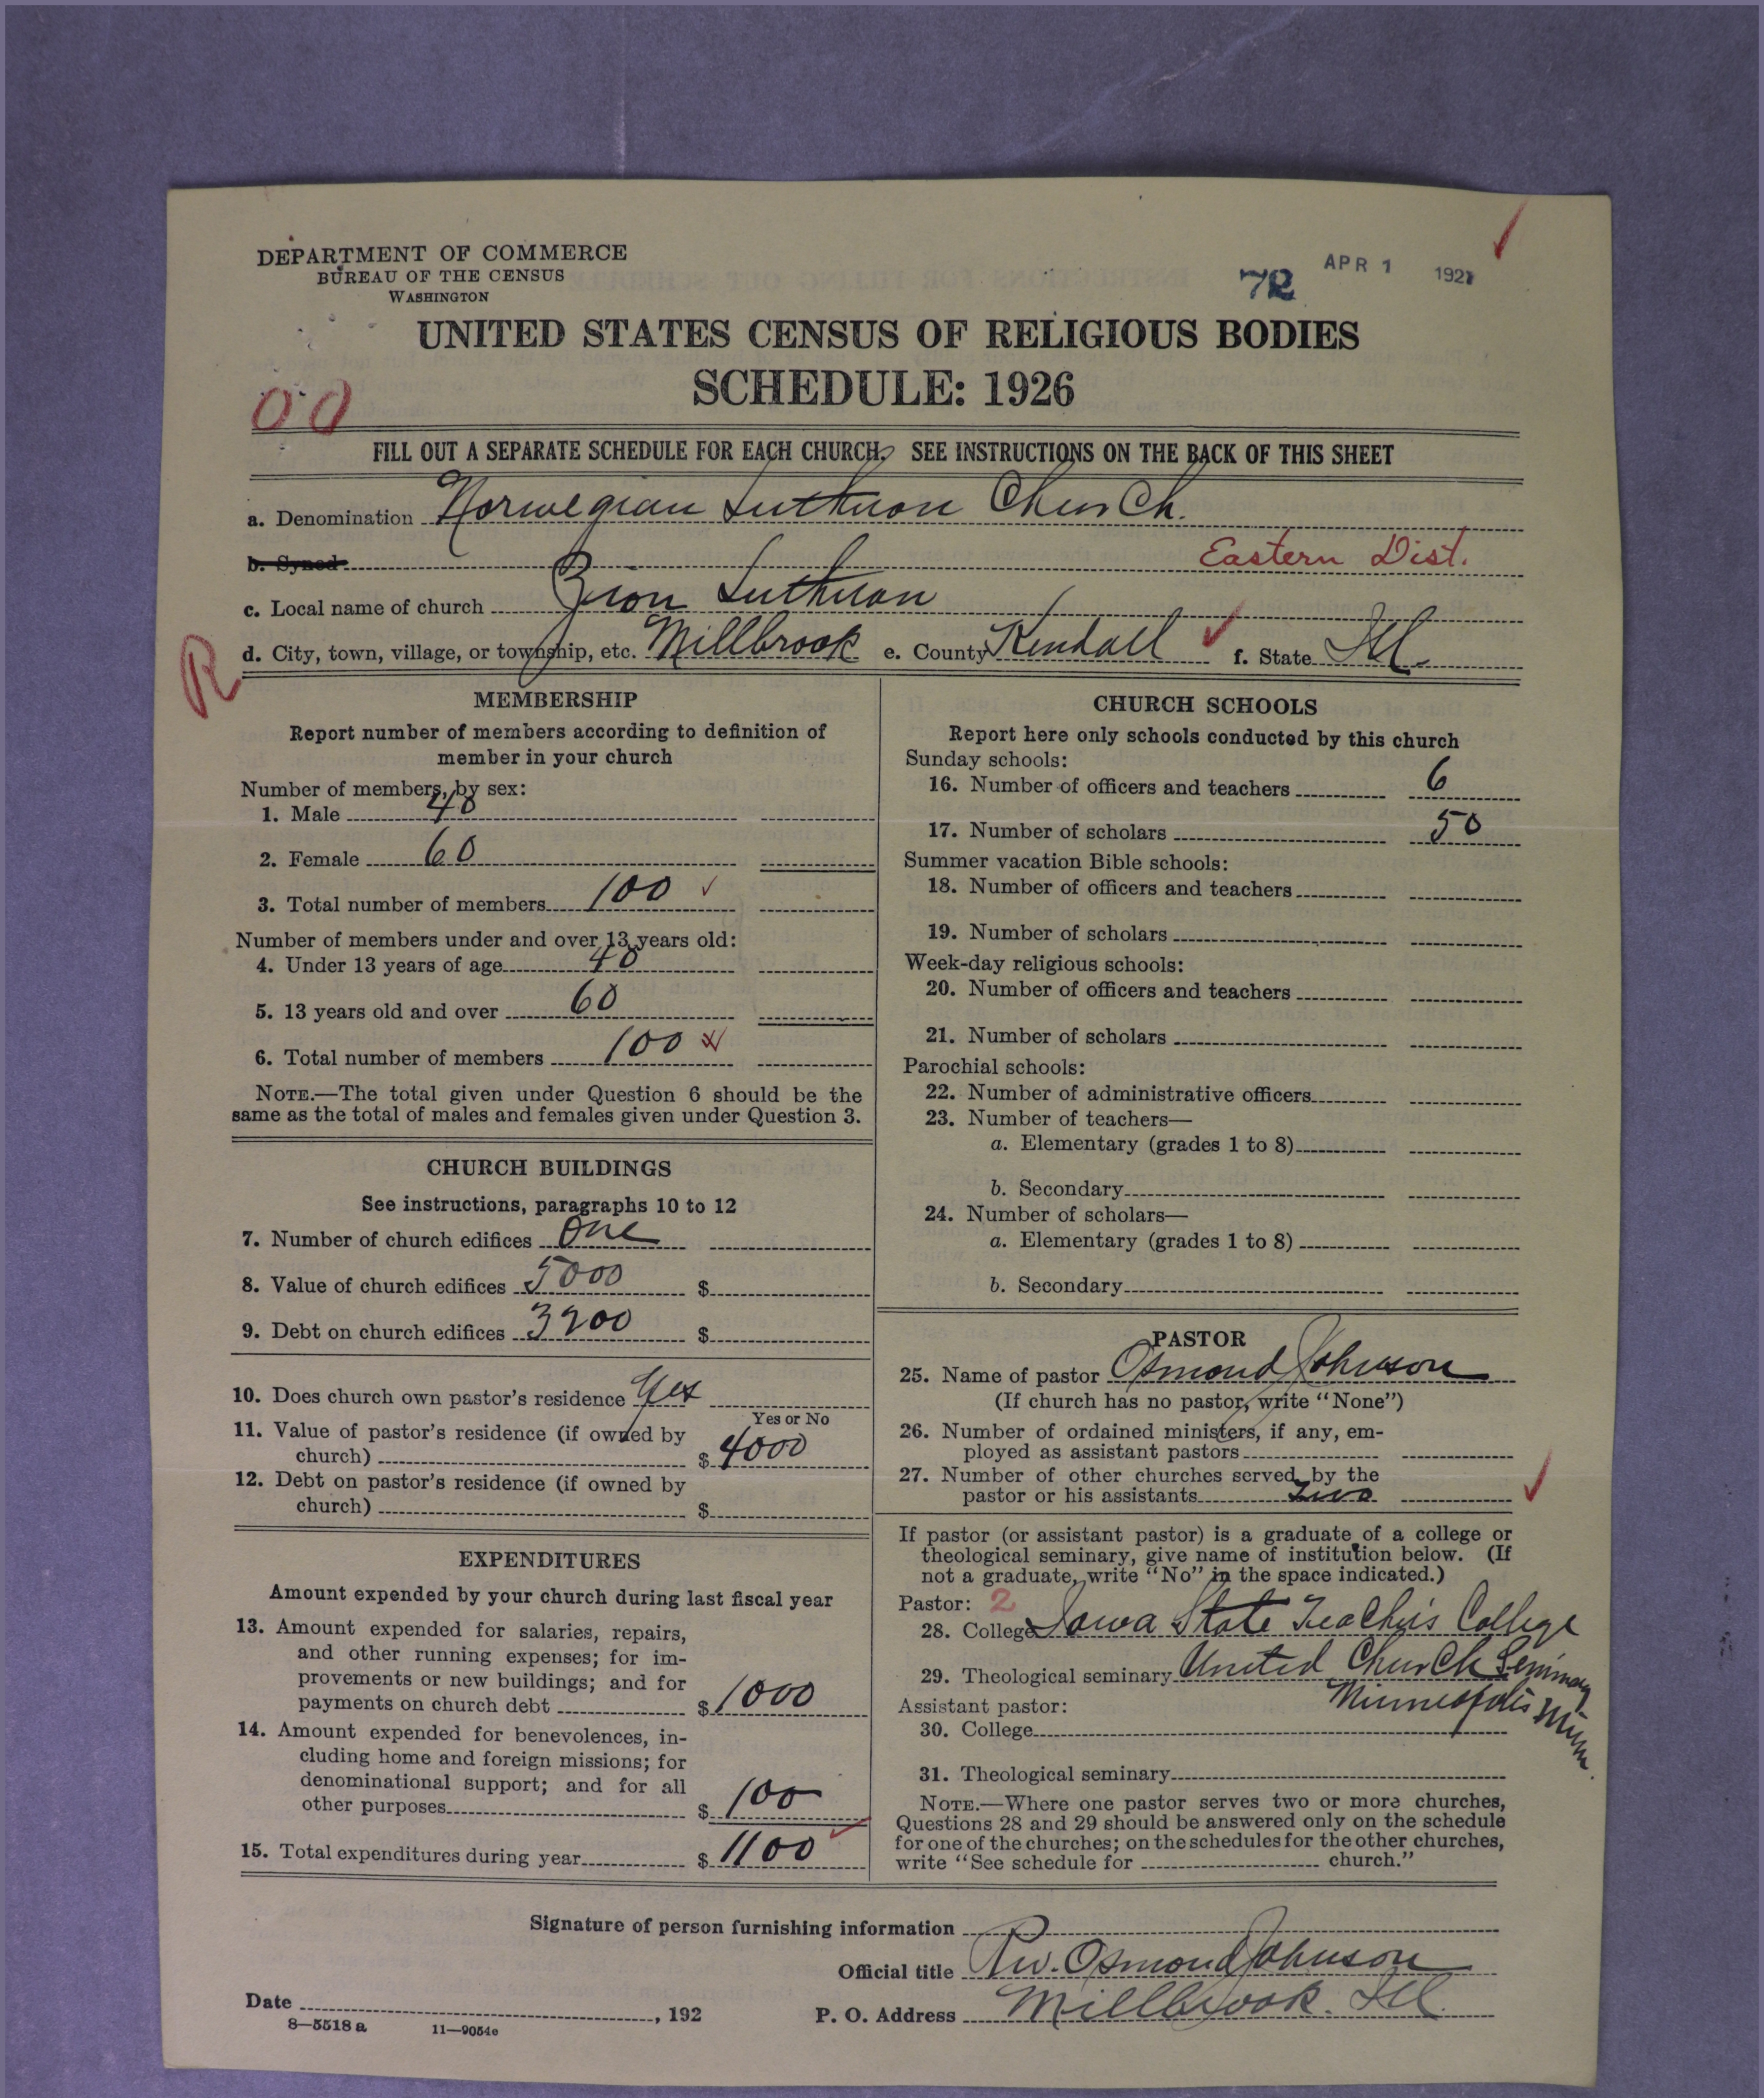 DEPARTMENT OF COMMERCE
BUREAU OF THE CENSUS
WASHINGTON
72 APR 1 1927
UNITED STATES CENSUS OF RELIGIOUS BODIES
SCHEDULE: 1926
00
FILL OUT A SEPARATE SCHEDULE FOR EACH CHURCH. SEE INSTRUCTIONS ON THE BACK OF THIS SHEET
a. Denomination Norwegian Lutheran Church.
b. Synod Eastern Dist.
c. Local name of church Zion Lutheran
d. City, town, village, or township, etc. Millbrook e. County Kendall f. State Ill.
R
MEMBERSHIP
Report number of members according to definition of
member in your church
Number of members, by sex:
1. Male 40
2. Female 60
3. Total number of members 100
Number of members under and over 13 years old:
4. Under 13 years of age 40
5. 13 years old and over 60
6. Total number of members 100
NOTE.—The total given under Question 6 should be the
same as the total of males and females given under Question 3.
CHURCH BUILDINGS
See instructions, paragraphs 10 to 12
7. Number of church edifices One
8. Value of church edifices 5000 $
9. Debt on church edifices 3200 $
10. Does church own pastor's residence Yes
Yes or No
11. Value of pastor's residence (if owned by
church) $ 4000
12. Debt on pastor's residence (if owned by
church) $
EXPENDITURES
Amount expended by your church during last fiscal year
13. Amount expended for salaries, repairs,
and other running expenses; for im-
provements or new buildings; and for
payments on church debt $ 1000
14. Amount expended for benevolences, in-
cluding home and foreign missions; for
denominational support; and for all
other purposes $ 100
15. Total expenditures during year $ 1100
CHURCH SCHOOLS
Report here only schools conducted by this church
Sunday schools:
16. Number of officers and teachers 6
17. Number of scholars 50
Summer vacation Bible schools:
18. Number of officers and teachers
19. Number of scholars
Week-day religious schools:
20. Number of officers and teachers
21. Number of scholars
Parochial schools:
22. Number of administrative officers
23. Number of teachers—
a. Elementary (grades 1 to 8)
b. Secondary
24. Number of scholars—
a. Elementary (grades 1 to 8)
b. Secondary
PASTOR
25. Name of pastor Osmond Johnson
(If church has no pastor, write "None")
26. Number of ordained ministers, if any, em-
ployed as assistant pastors
27. Number of other churches served by the
pastor or his assistants Two
If pastor (or assistant pastor) is a graduate of a college or
theological seminary, give name of institution below. (If
not a graduate, write "No" in the space indicated.)
Pastor: 2
28. College Iowa State Teachers College
29. Theological seminary United Church Seminary
Minneapolis Minn.
Assistant pastor:
30. College
31. Theological seminary
NOTE.—Where one pastor serves two or more churches,
Questions 28 and 29 should be answered only on the schedule
for one of the churches; on the schedules for the other churches,
write "See schedule for church."
Signature of person furnishing information
Official title Rev. Osmond Johnson
Date , 192 P. O. Address Millbrook. Ill.
8—5518 a 11—9054c